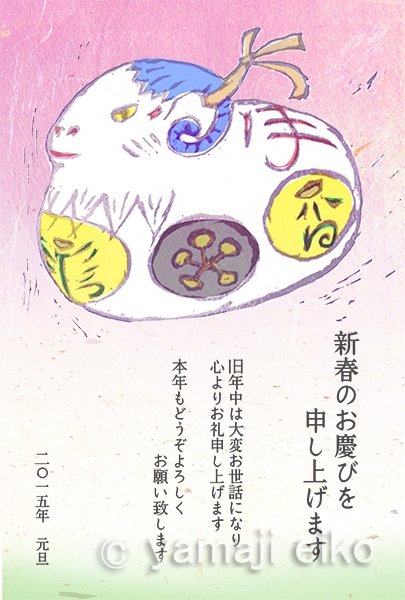 新春のお慶びを
申し上げます
旧年中は大変お世話になり
心よりお礼申し上げます
本年もどうぞよろしく
お願い致します
二〇一五年 元旦
© yamaji eiko